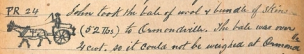 PR 24 John took the bale of wool & bundle of skins
(52 lbs) to Ormondville. The bale was over
4 cwt. so it could not be weighed at Ormond